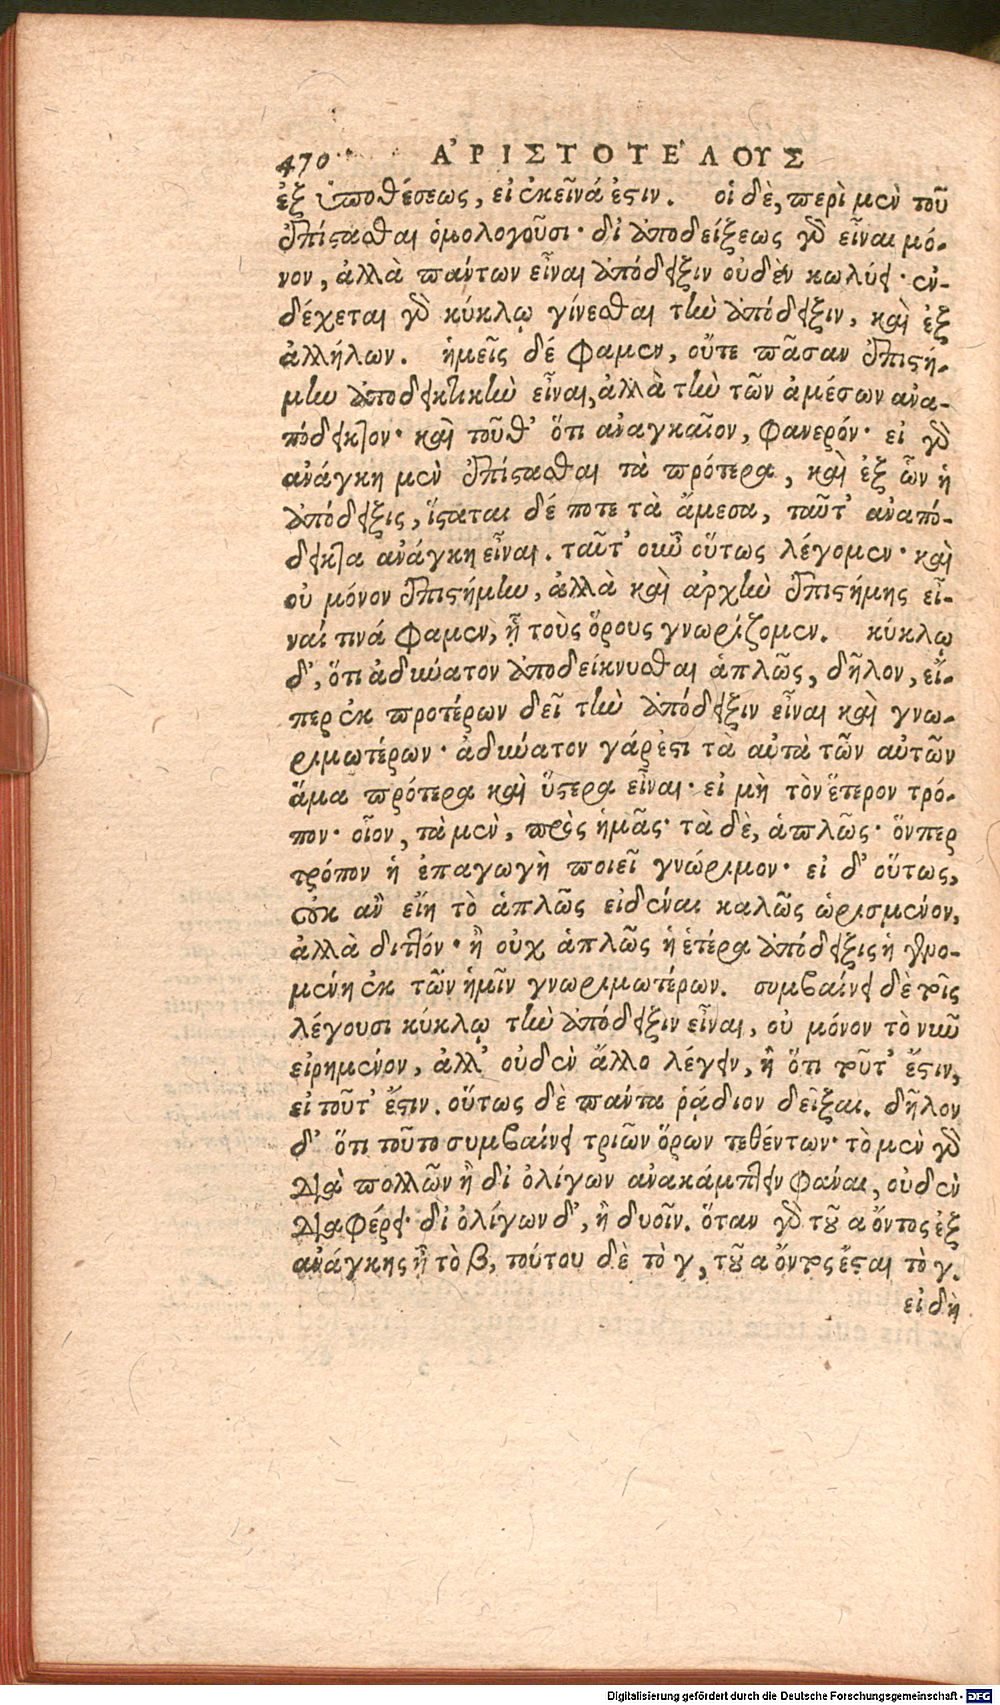 470 ἈΡΙΣΤΟΤΕ´ΛΟΥΣ
ἐξ ὑποθέσεως, εἰ ἐκεῖνά ἐστιν. οἱ δὲ, περὶ μὲν τοῦ
ἐπίστασθαι ὁμολογοῦσι· δι᾽ ἀποδείξεως γὰρ εἶναι μό-
νον, ἀλλὰ πάντων εἶναι ἀπόδειξιν οὐδὲν κωλύει· ἐν-
δέχεται γὰρ κύκλῳ γίνεσθαι τὴν ἀπόδειξιν, καὶ ἐξ
ἀλλήλων. ἡμεῖς δέ φαμεν, οὔτε πᾶσαν ἐπιστή-
μην ἀποδεικτικὴν εἶναι, ἀλλὰ τὴν τῶν ἀμέσων ἀνα-
πόδεικτον· καὶ τοῦθ᾽ ὅτι ἀναγκαῖον, φανερόν· εἰ γὰρ
ἀνάγκη μὲν ἐπίστασθαι τὰ πρότερα, καὶ ἐξ ὧν ἡ
ἀπόδειξις, ἵσταται δέ ποτε τὰ ἄμεσα, ταῦτ᾽ ἀναπό-
δεικτα ἀνάγκη εἶναι. ταῦτ᾽ οὖν οὕτως λέγομεν· καὶ
οὐ μόνον ἐπιστήμην, ἀλλὰ καὶ ἀρχὴν ἐπιστήμης εἶ-
ναί τινά φαμεν, ᾗ τοὺς ὅρους γνωρίζομεν. κύκλῳ
δ᾽, ὅτι ἀδύνατον ἀποδείκνυσθαι ἁπλῶς, δῆλον, εἴ-
περ ἐκ προτέρων δεῖ τὴν ἀπόδειξιν εἶναι καὶ γνω-
ριμωτέρων· ἀδύνατον γάρ ἐστι τὰ αὐτὰ τῶν αὐτῶν
ἅμα πρότερα καὶ ὕστερα εἶναι· εἰ μὴ τὸν ἕτερον τρό-
πον· οἷον, τὰ μὲν, πρὸς ἡμᾶς· τὰ δὲ, ἁπλῶς· ὅνπερ
τρόπον ἡ ἐπαγωγὴ ποιεῖ γνώριμον· εἰ δ᾽ οὕτως,
οὐκ ἂν εἴη τὸ ἁπλῶς εἰδέναι καλῶς ὡρισμένον,
ἀλλὰ διττόν· ἢ οὐχ ἁπλῶς ἡ ἑτέρα ἀπόδειξις ἡ γινο-
μένη ἐκ τῶν ἡμῖν γνωριμωτέρων. συμβαίνει δὲ τοῖς
λέγουσι κύκλῳ τὴν ἀπόδειξιν εἶναι, οὐ μόνον τὸ νῦν
εἰρημένον, ἀλλ᾽ οὐδὲν ἄλλο λέγειν, ἢ ὅτι τοῦτ᾽ ἔστιν,
εἰ τοῦτ᾽ ἔστιν. οὕτως δὲ πάντα ῥᾴδιον δεῖξαι. δῆλον
δ᾽ ὅτι τοῦτο συμβαίνει τριῶν ὅρων τεθέντων· τὸ μὲν γὰρ
διὰ πολλῶν ἢ δι᾽ ὀλίγων ἀνακάμπτειν φάναι, οὐδὲν
διαφέρει· δι᾽ ὀλίγων δ᾽, ἢ δυοῖν. ὅταν γὰρ τοῦ α ὄντος ἐξ
ἀνάγκης ᾖ τὸ β, τούτου δὲ τὸ γ, τοῦ α ὄντος ἔσται τὸ γ.
εἰ δὴ
Digitalisierung gefördert durch die Deutsche Forschungsgemeinschaft - DFG